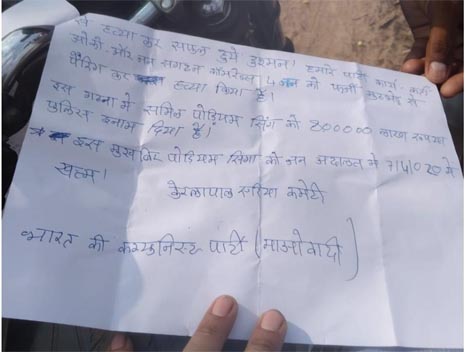 से हत्या कर सफल हुये दुश्मन। हमारे पार्टी कार्य-कर्ता
ओंकी और जन संगठन कॉमरेड्स 4 को फर्जी मुठभेड़ में
कर हत्या किया है।
इस गस्ना में सामिल पोड़ियम सिंग को 800000 लाख रूपया
पुलिस इनाम दिया है।
इस मुखबिर पोड़ियम सिंग को जन अदालत में 7/4/020 में
खत्म।
केरलापाल एरिया कमेटी
भारत की कम्युनिस्ट पार्टी (माओवादी)